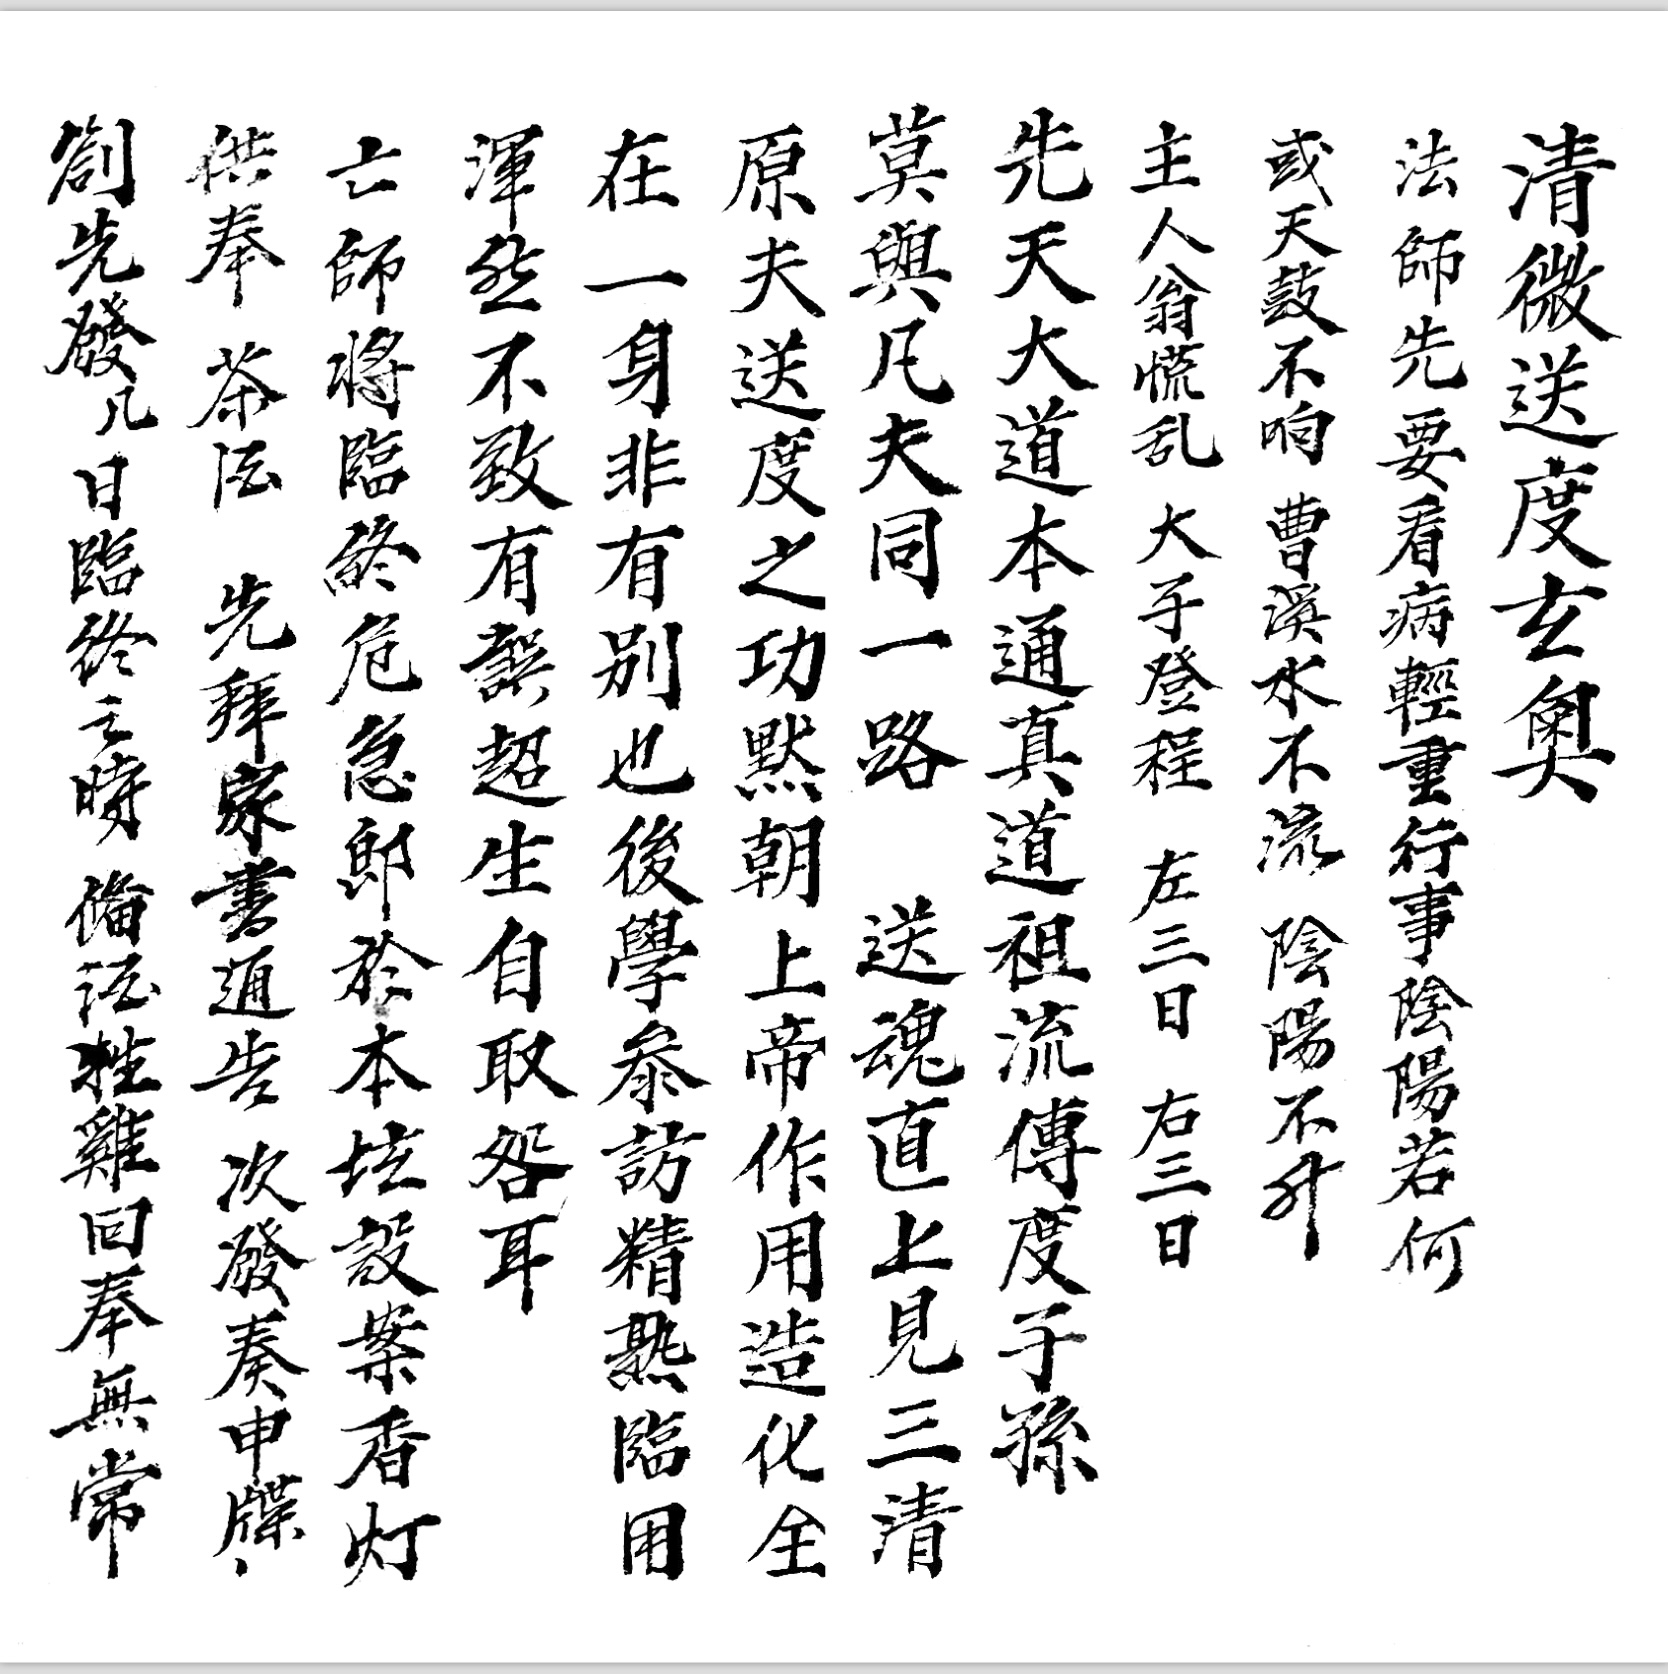 清微送度玄奧
法師先要看病輕重行事陰陽若何
或天鼓不响 曹溪水不流 陰陽不升
主人翁慌乱 大子登程 左三日 右三日
先天大道本通真道祖流傳度子孫
莫與凡夫同一路 送魂直上見三清
原夫送度之功默朝上帝作用造化全
在一身非有别也後學叅訪精熟臨用
渾然不致有誤超生自取咎耳
亡師將臨終危急郎於本坛設案香灯
供奉茶法 先拜家書通告 次發奏申牒
劄先發凡日臨終之時 備酒牲雞回奉無常